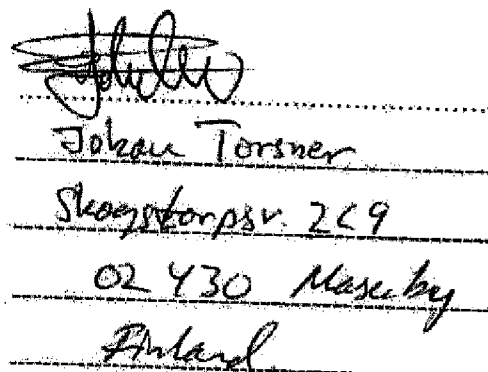 Johan Torsner
Skogstorpsv. 2C9
02430 Masaby
Finland